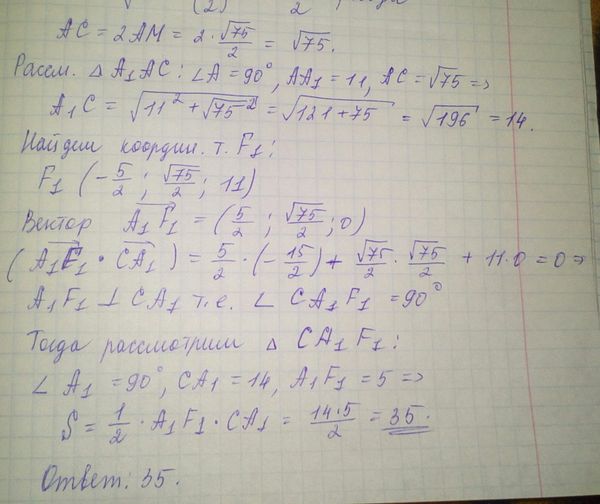 (2) 2
AC = 2AM = 2 · √75/2 = √75.
Рассм. △ A₁AC: ∠A = 90°, AA₁ = 11, AC = √75 =>
A₁C = √(11² + √75²) = √(121+75) = √196 = 14.
Найдем координ. т. F₁:
F₁ (-5/2; √75/2; 11)
Вектор A₁F₁ = (5/2; √75/2; 0)
(A₁F₁ · CA₁) = 5/2 · (-15/2) + √75/2 · √75/2 + 11·0 = 0 =>
A₁F₁ ⊥ CA₁ т.е. ∠ CA₁F₁ = 90°
Тогда рассмотрим △ CA₁F₁:
∠ A₁ = 90°, CA₁ = 14, A₁F₁ = 5 =>
S = 1/2 · A₁F₁ · CA₁ = 14·5/2 = 35.
Ответ: 35.